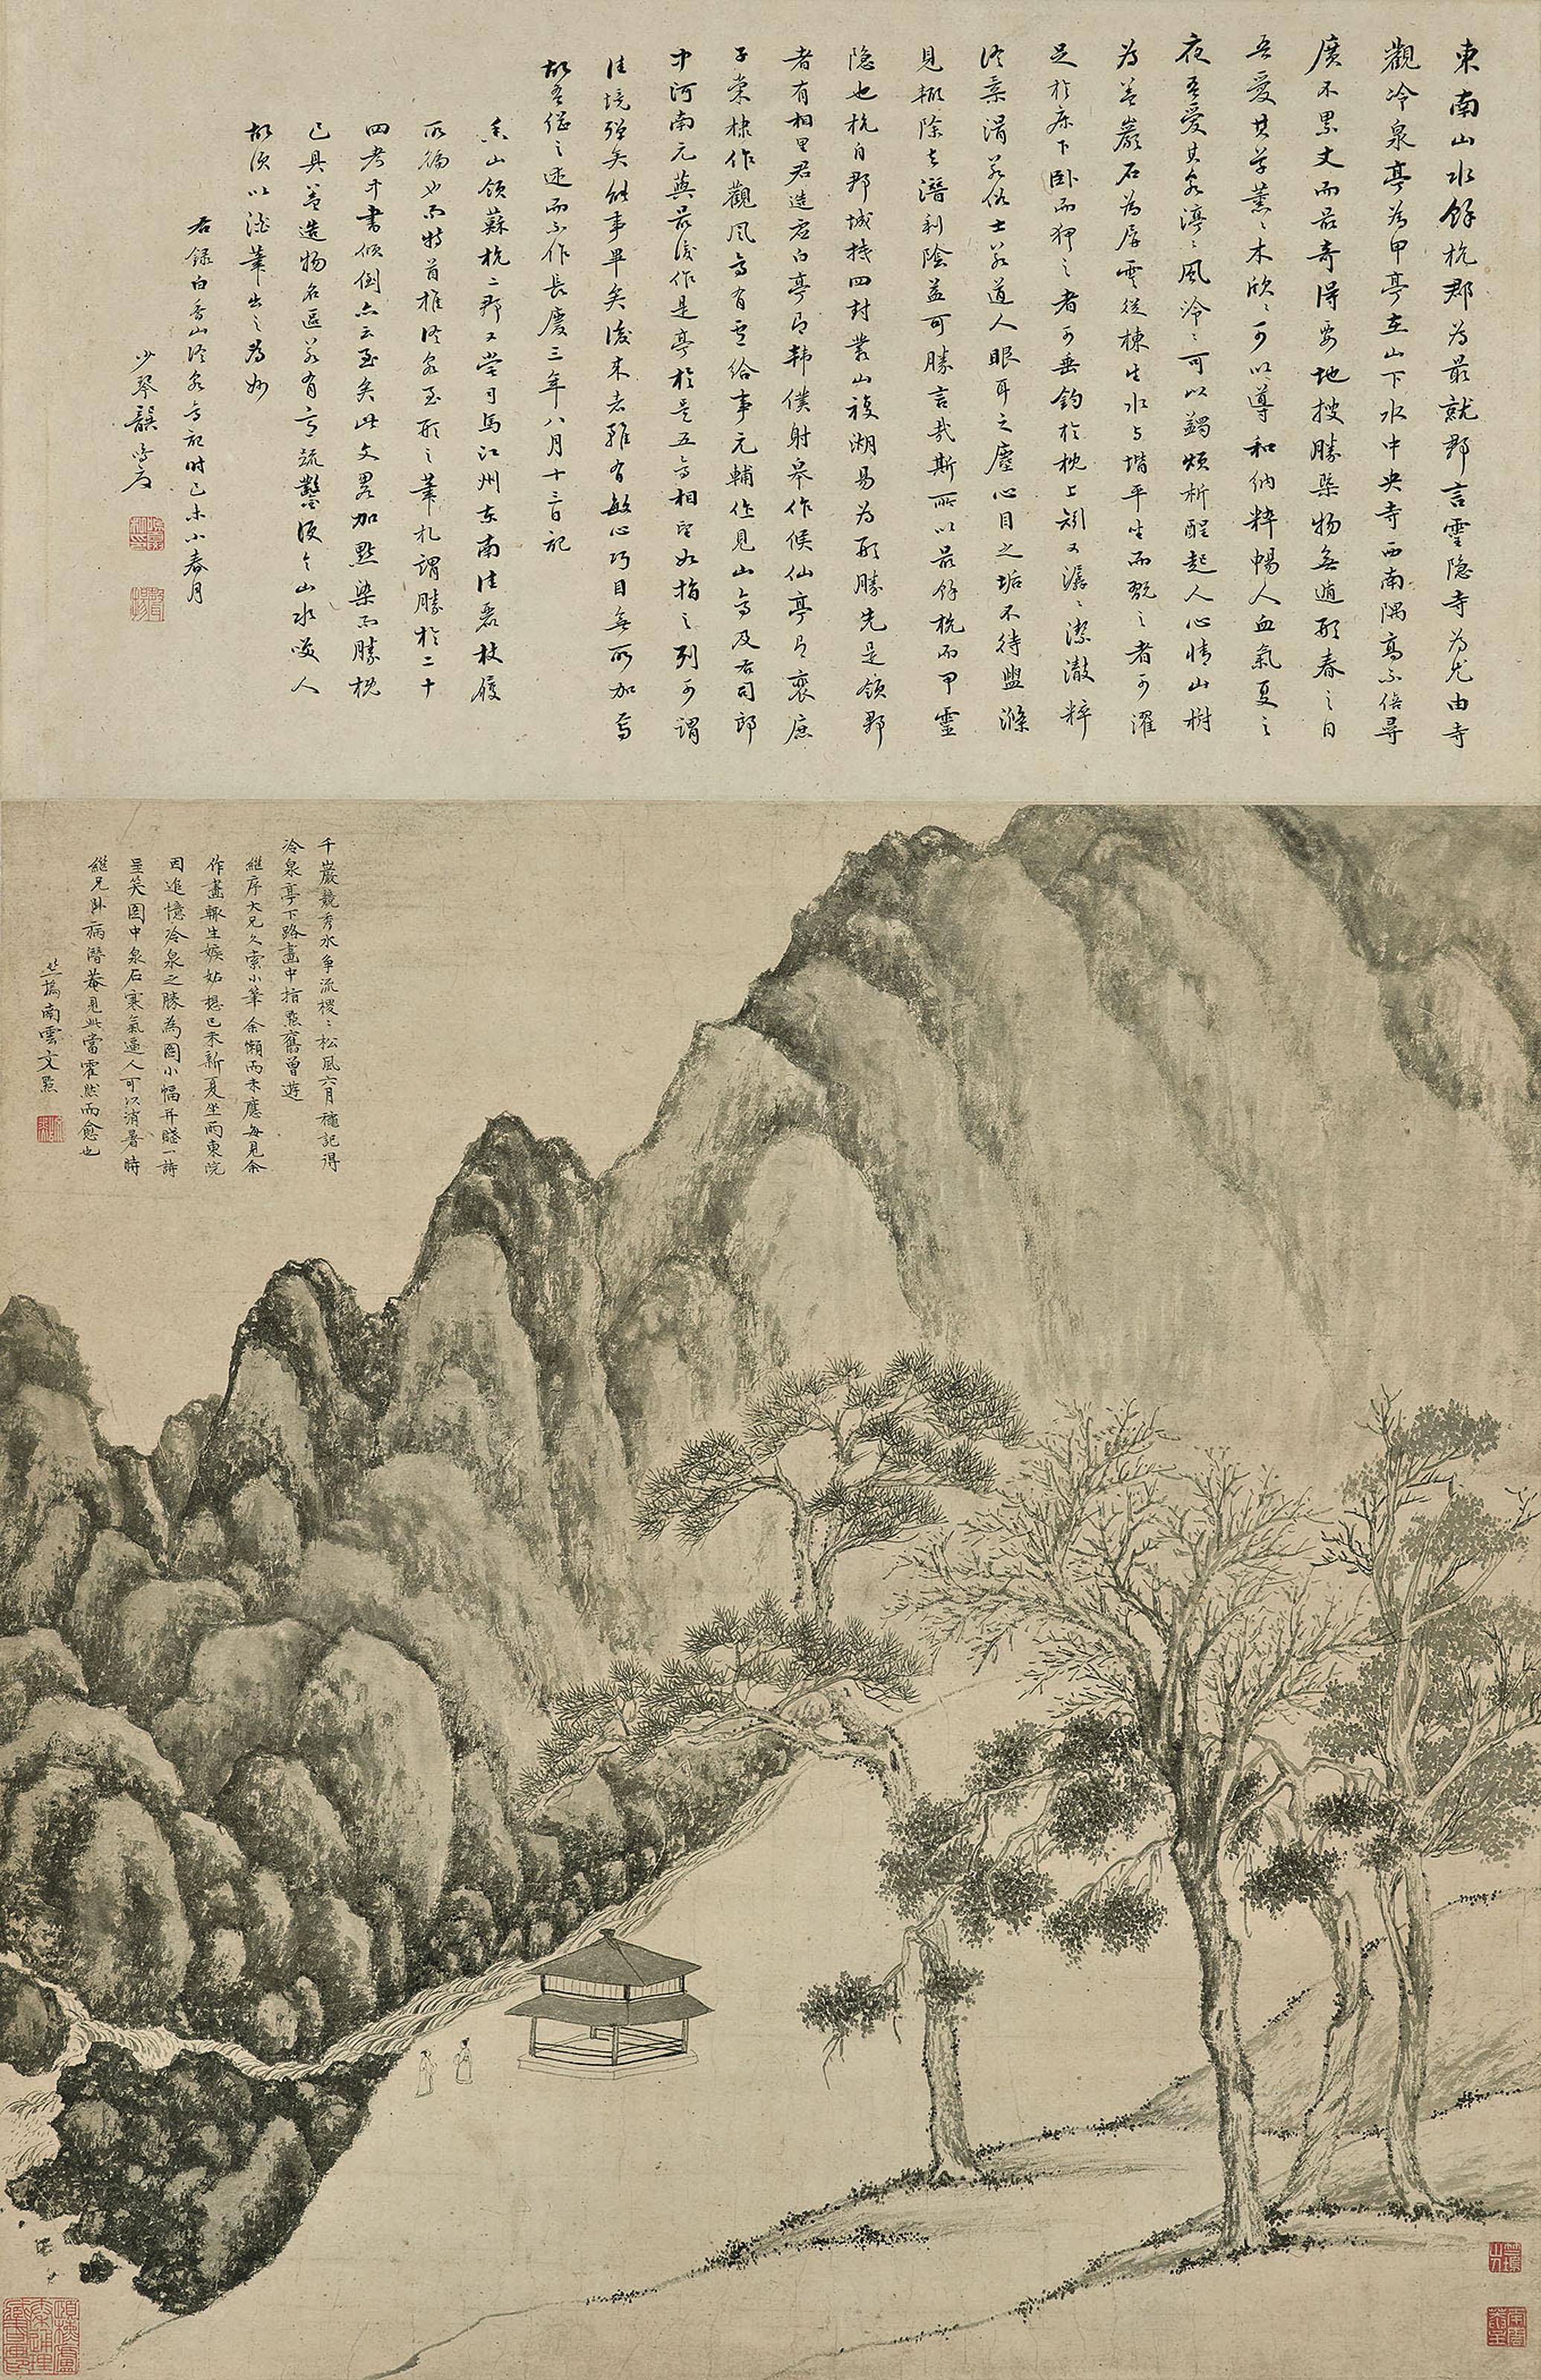 東南山水餘杭郡為最就郡言靈隱寺為尤由寺
觀冷泉亭為甲亭在山下水中央寺西南隅高不倍尋
廣不累丈而最奇得要地搜勝槩物無遁形春之日
吾愛其草薰〻木欣〻可以導和納粹暢人血氣夏之
夜吾愛其泉渟〻風泠〻可以蠲煩析酲起人心情山樹
為蓋巖石為屏雲從棟生水与堦平坐而翫之者可濯
足於床下臥而狎之者可垂釣於枕上矧又潺〻潔澈粹
冷柔滑若俗士若道人眼耳之塵心目之垢不待盥滌
見輒除去潛利陰益可勝言哉斯所以最餘杭而甲靈
隱也杭自郡城抵四封叢山複湖易為形勝先是領郡
者有相里君造虛白亭有韓僕射皋作候仙亭有裴庶
子棠棣作觀風亭有盧給事元輔作見山亭及右司郎
中河南元藇最後作是亭於是五亭相望如指之列可謂
佳境殫矣能事畢矣後來者雖有敏心巧目無所加焉
故吾繼之述而不作長慶三年八月十三日記
香山領蘇杭二郡又嘗司馬江州東南佳麗杖屨
所徧也而特首推冷泉至形之筆札謂勝於二十
四考中書傾倒亦云至矣此文畧加點染而勝概
已具蓋造物名區若有意疏鑿令山水咲人
故須以澹筆出之為妙
右錄白香山冷泉亭記時己未小春月
少琴
千巖競秀水爭流稷〻松風六月穐記得
冷泉亭下路畫中指點舊曾遊
繼序大兄久索小筆余懶而未應每見余
作畫輒生嫉妬想己未新夏坐雨東院
因追憶冷泉之勝為圖小幅并賸一詩
呈笑圖中泉石寒氣逼人可以消暑時
繼兄卧病潛菴見此當霍然而愈也
竺塢南雲文點